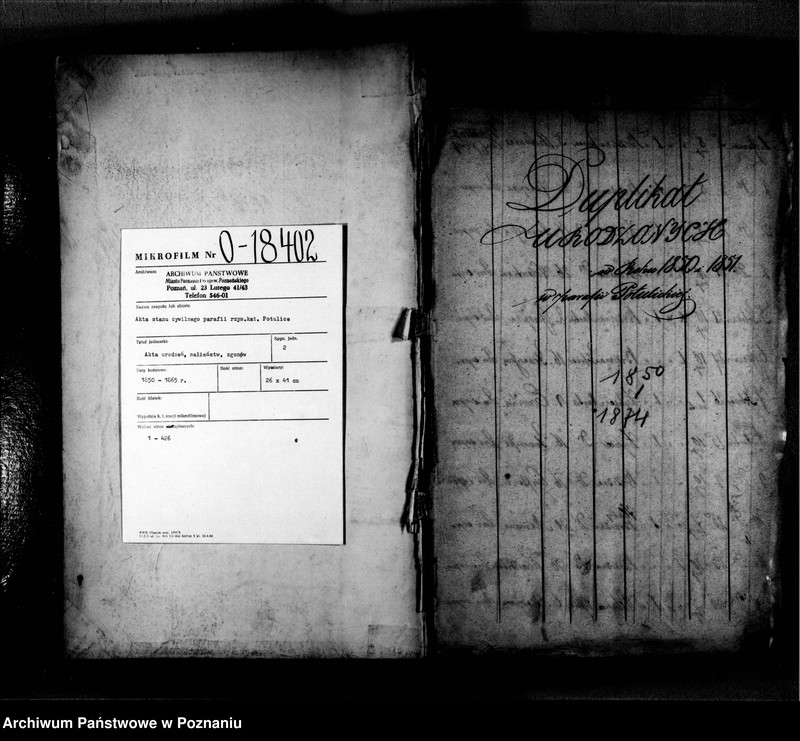 MIKROFILM Nr O-18402
Archiwum
ARCHIWUM PAŃSTWOWE
Miasta Poznania i Wojew. Poznańskiego
Poznań, ul. 23 Lutego 41/43
Telefon 546-01
Nazwa zespołu lub zbioru:
Akta stanu cywilnego parafii rzym.kat. Potulice
Tytuł jednostki:
Akta urodzeń, małżeństw, zgonów
Sygn. jedn.
2
Daty końcowe:
1850 - 1865 r.
Ilość stron:
Wymiary:
26 x 41 cm
Ilość klatek:
Wypełnia k. t. stacji mikrofilmowej
1 - 426
Duplikat
URODZONYCH
w Roku 1850 i 1851.
w parafii Potulickiej
1850
1
1874
Archiwum Państwowe w Poznaniu